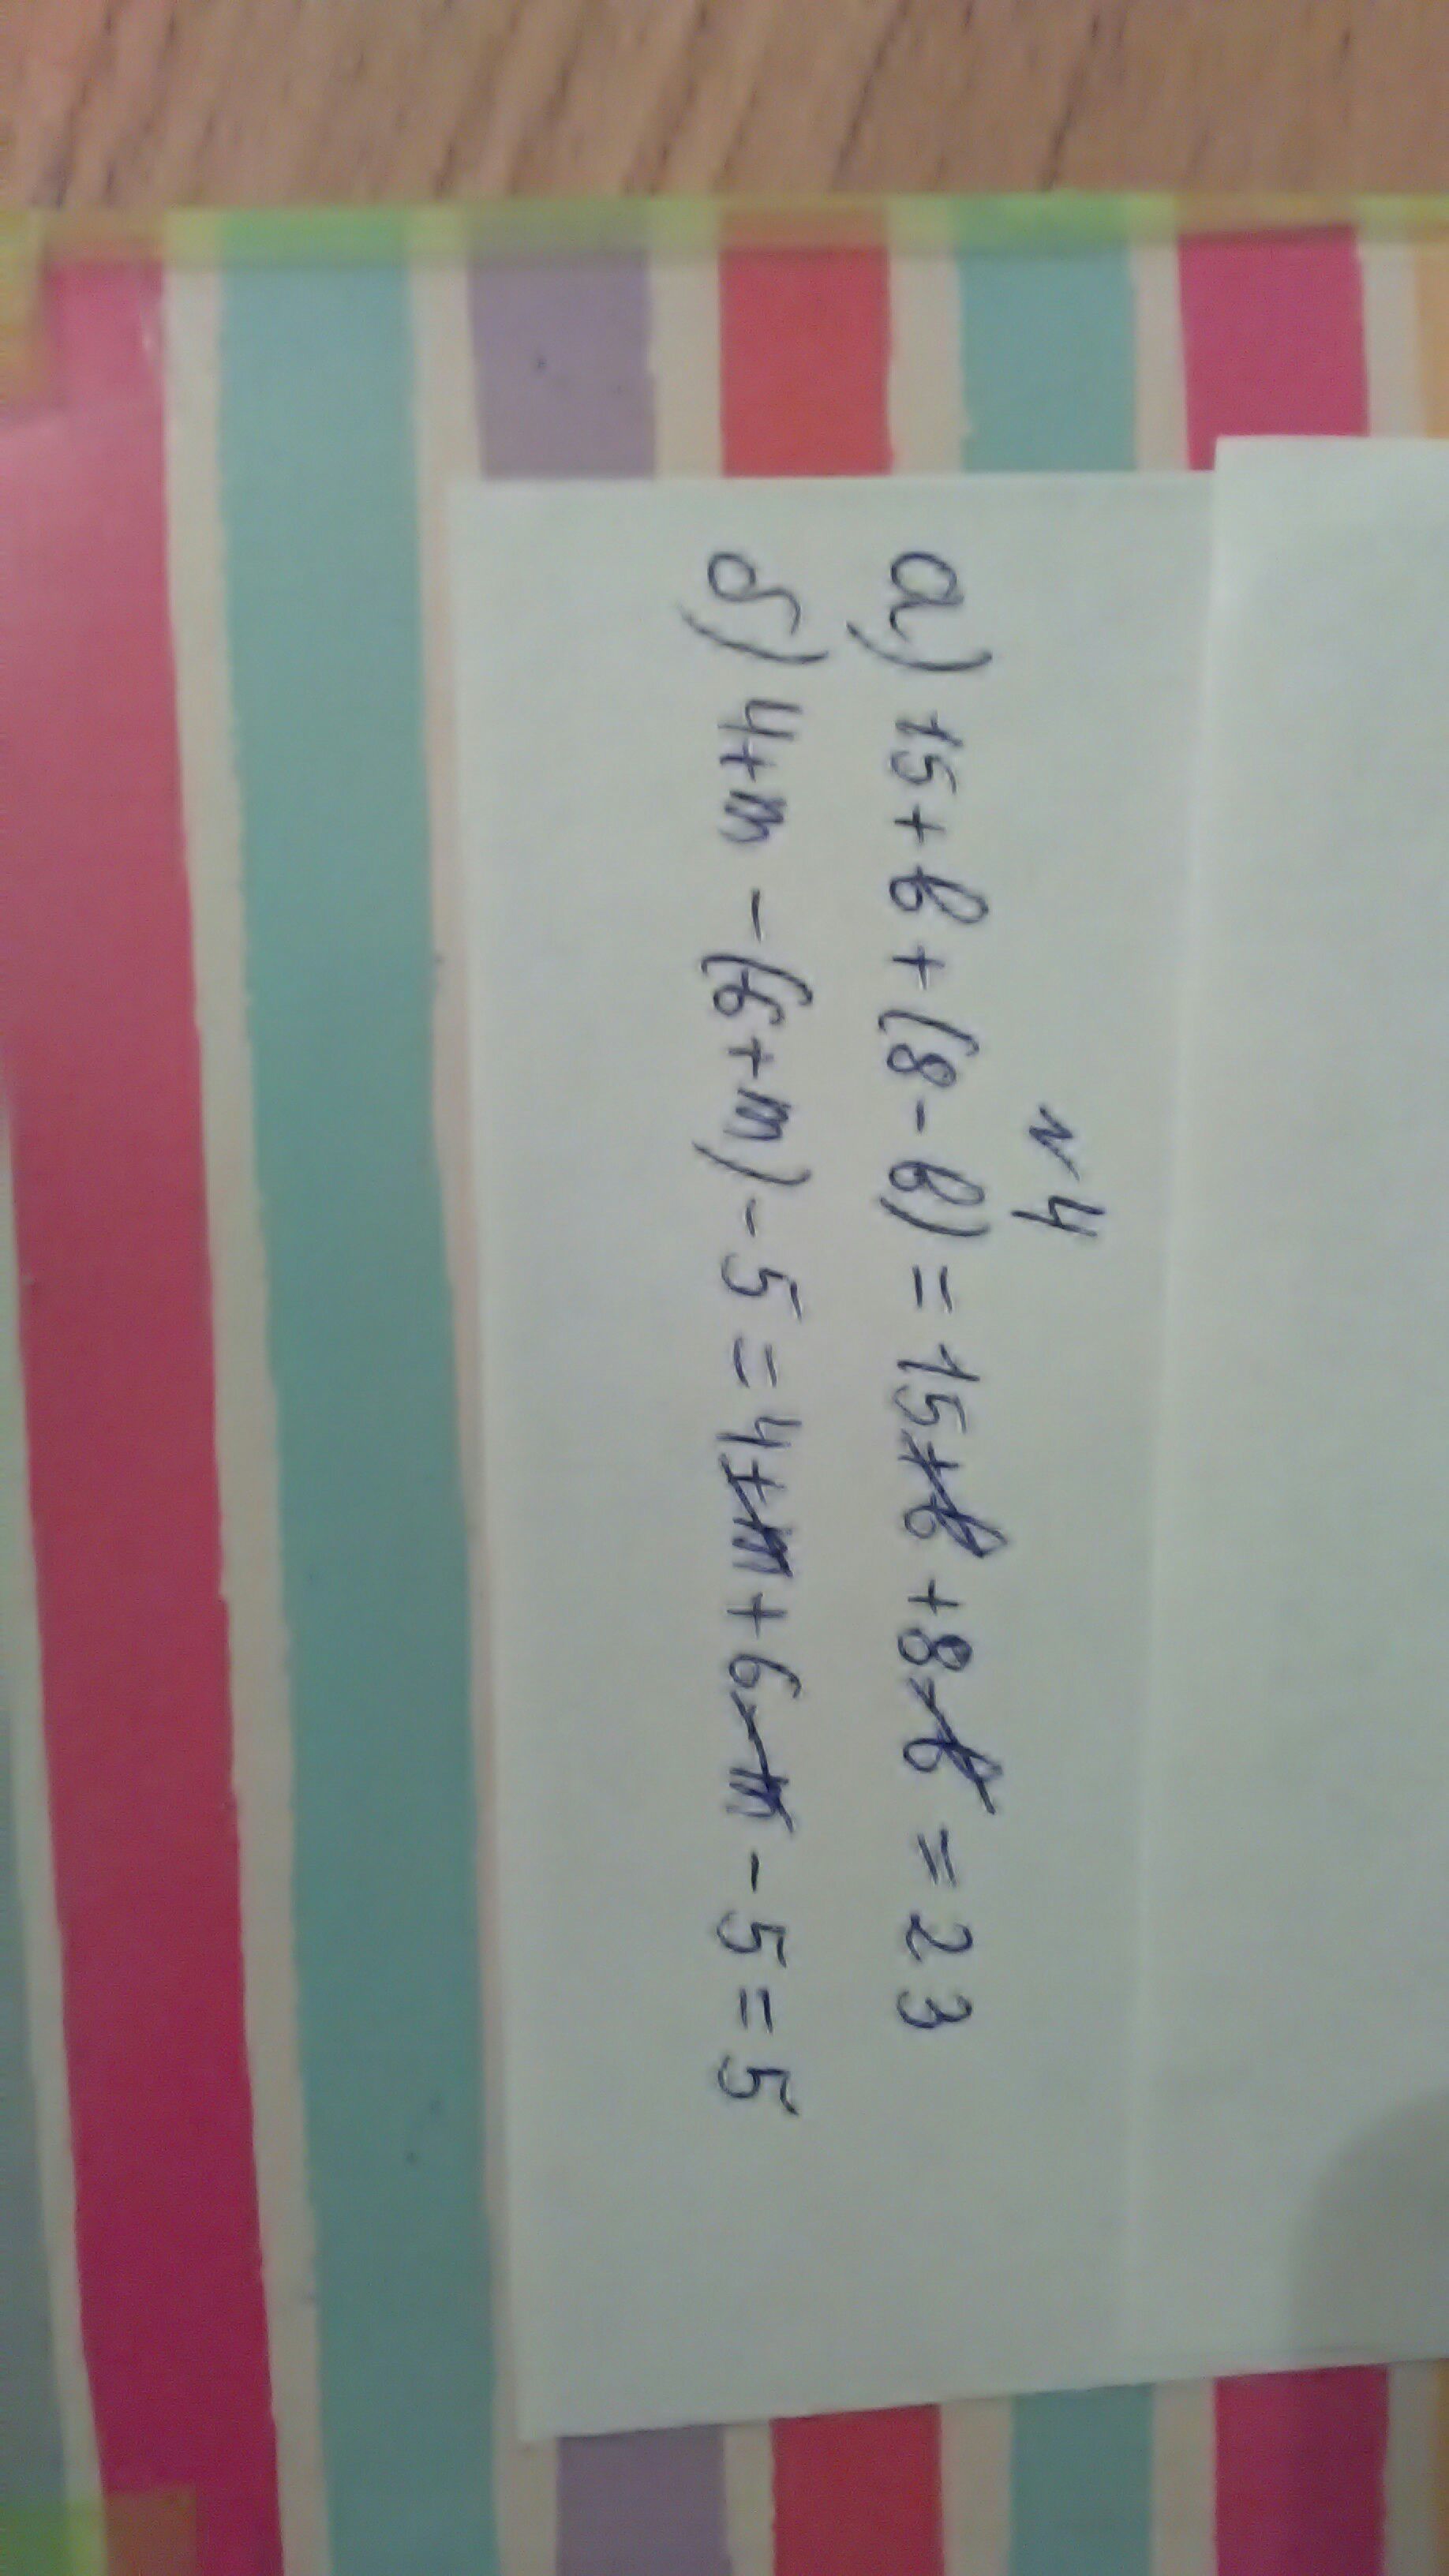 №4
а) 15 + в + (8 - в) = 15 + в + 8 - в = 23
б) 4 + m - (6 + m) - 5 = 4 + m + 6 - m - 5 = 5